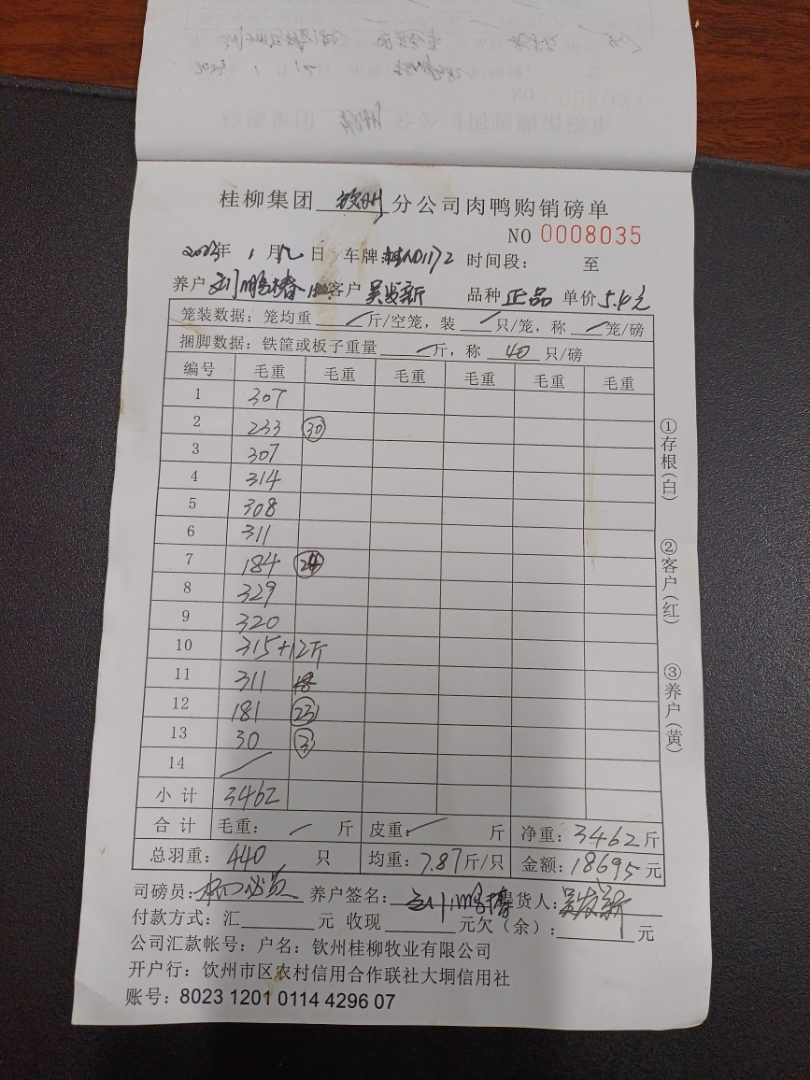 桂柳集团 钦州 分公司肉鸭购销磅单
NO 0008035
2023年 1 月 12 日 车牌: 桂N01172 时间段: 至
养户 刘鹏椿 客户 吴发新 品种 正品 单价 5.4元
笼装数据:笼均重 / 斤/空笼,装 / 只/笼,称 / 笼/磅
捆脚数据:铁筐或板子重量 / 斤,称 40 只/磅
编号 毛重 毛重 毛重 毛重 毛重 毛重
1 307
2 233 30
3 307
4 314
5 308
6 311
7 184 24
8 329
9 320
10 315+12斤
11 311
12 181 23
13 30 3
14 /
小计 3462
合计 毛重: / 斤 皮重: / 斤 净重: 3462 斤
总羽重: 440 只 均重: 7.87 斤/只 金额: 18695 元
司磅员: 养户签名: 刘鹏椿 货人: 吴发新
付款方式:汇 元 收现 元欠(余): 元
公司汇款帐号:户名:钦州桂柳牧业有限公司
开户行:饮州市区农村信用合作联社大垌信用社
账号:8023 1201 0114 4296 07
①存根(白)
②客户(红)
③养户(黄)